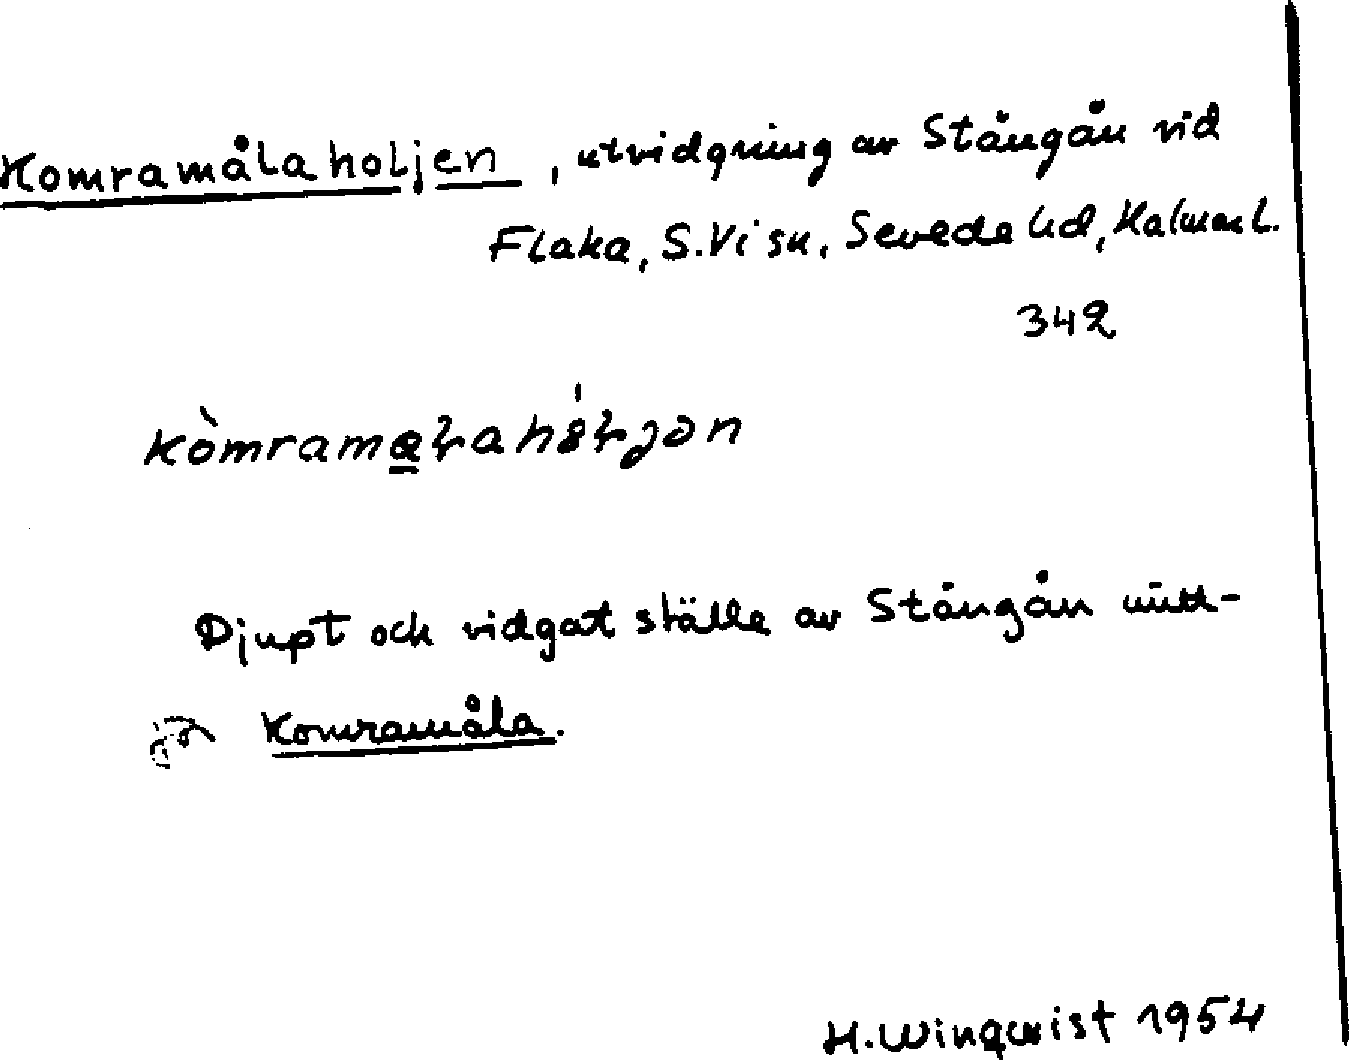 Komramålaholjen, utvidgning av Stångån vid
Flaka, S.Vi sn, Sevede hd, Kalmar l.
342
Djupt och vidgat ställe av Stångån
Komramåla.
H. Winqwist 1954